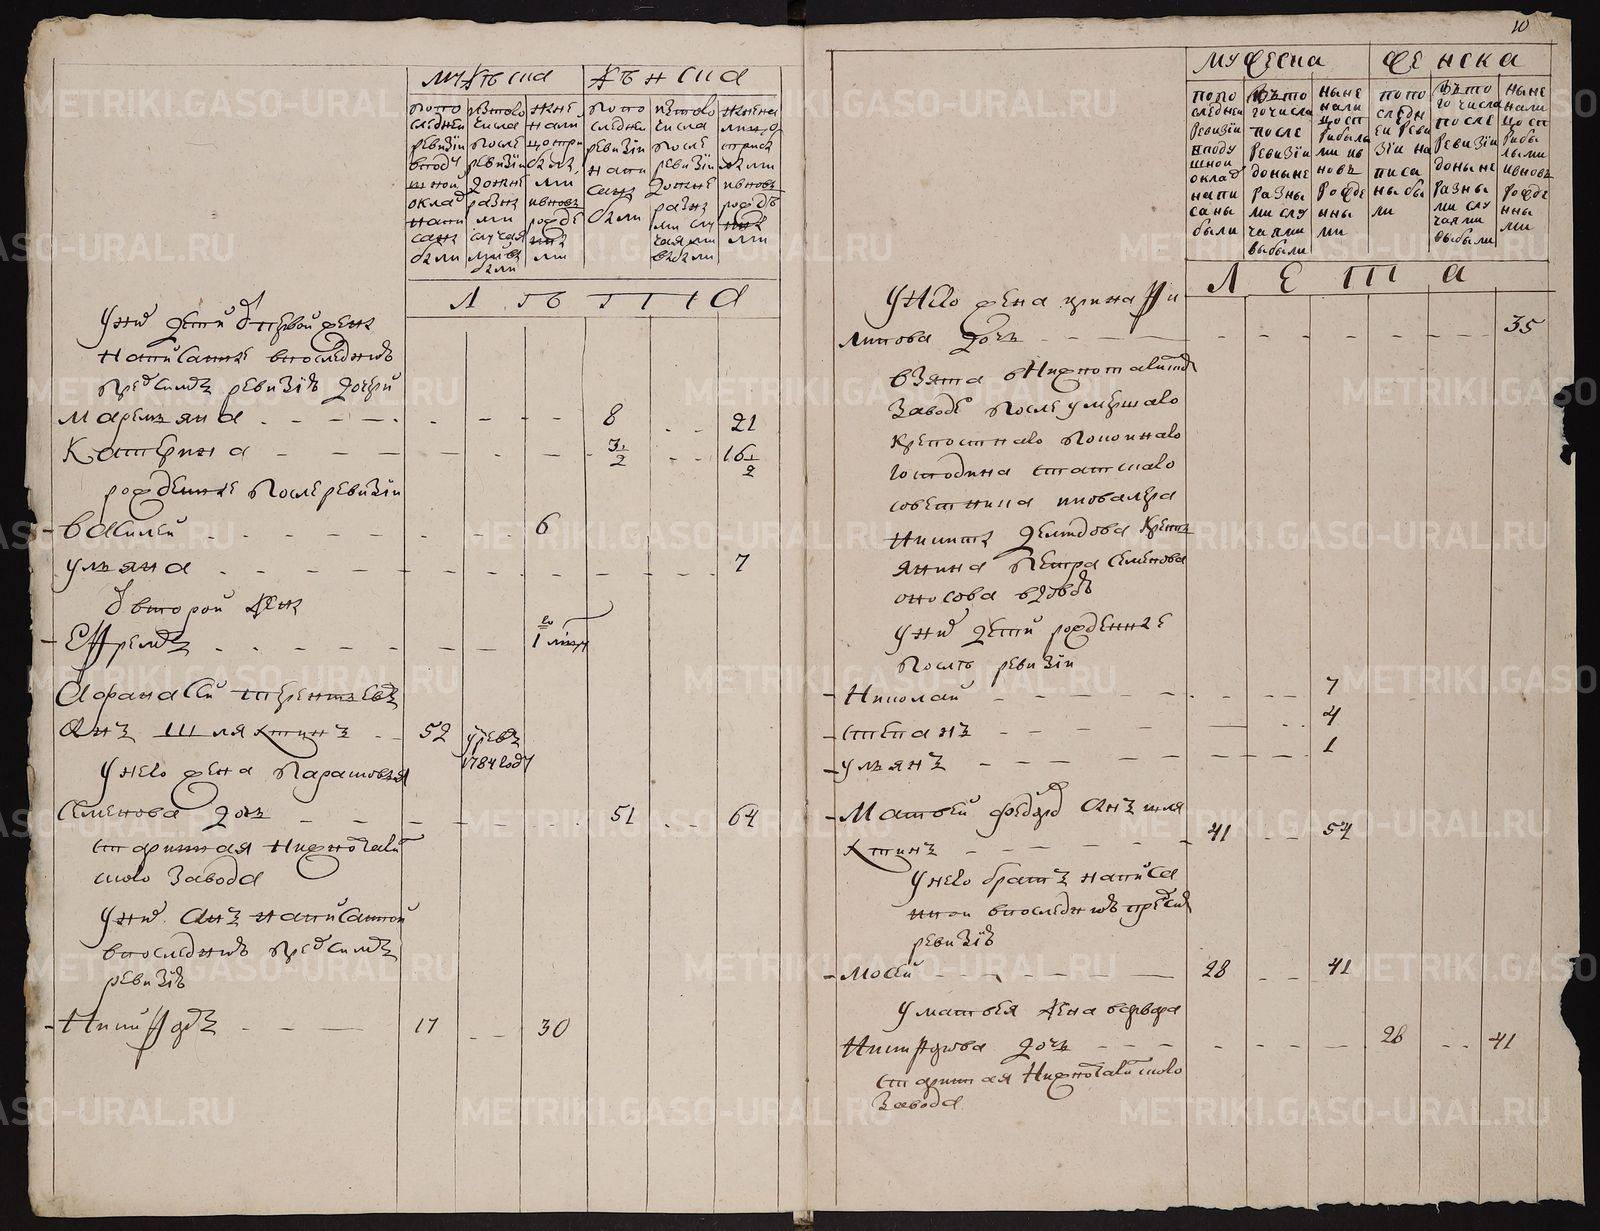 мужеска женска
попо следней ревизiи вподу шной оклад напи саны были
изтого числа после ревизiи доныне разны ми случая ми вы были
ныне нали цо сприбылы ми ивновь рожде нны ми
попо следней ревизiи напи саны были
изтого числа после ревизiи доныне разны ми слу чаями выбыли
Л ѣ т а
у них детей от первой жены
написанные впоследней
пред симъ ревизiи дочери
Маремьяна 8 21
Катерина 3 1/2 16 1/2
рожденные после ревизiи
василей 6
ульяна 7
от второй жены
Ефремъ 1 го
Афанасей терентьевъ
сынъ Шляхтинъ 52 умре въ 1784 году
у него жена парасковья
Семенова дочь 51 64
старинная нижнотагил
скаго завода
у них сынъ написанной
впоследней пред симъ
ревизiи
Никифоръ 17 30
10
мужеска женска
попо следней ревизiи вподу шной оклад напи саны были
изъ то го числа после ревизiи доныне разны ми слу чаями выбыли
ныне нали цо сп рибылы ми ив новь рожде нны ми
попо следн ей реви зiи на писа ны бы ли
изъ то го числа после ревизiи доныне разны ми слу чаями выбыли
ныне нали цо сп рибы лыми ивновь рожде нны ми
Л Е Т А
у него жена ирина Фи
липова дочь 35
взята в Нижнотагилск
заводе после умершаго
крепостнаго покойнаго
господина статскаго
советника иковалера
Никиты демидова крестья
янина петра Семенова
оносова вдовѣ
у них детей рожденные
послѣ ревизiи
Николай 7
степанъ 4
ульянъ 1
Матвей федоров сынъ шля
хтинъ 41 54
у него братъ написа
нной впоследней пред сим
ревизiи
мосей 28 41
у матвея жена варвара
Никифорова дочь 28 41
старинная Нижнотагилскаго
завода